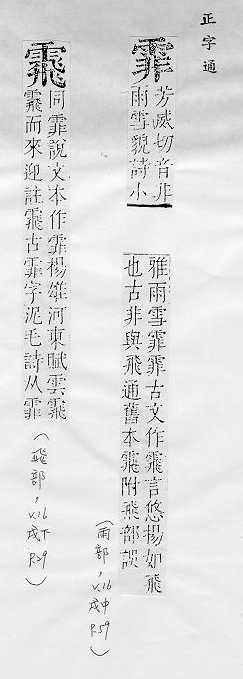 正字通
霏
芳威切音非
雨雪貌詩小
雅雨雪霏霏古文作䬠言悠揚如飛
也古非與飛通舊本䬠附飛部誤
（雨部，v.16
戌中
P.59）
䬠
同霏說文本作霏揚雄河東賦雲䬠
䬠而來迎註䬠古霏字泥毛詩从霏
（飛部，v.16
戌下
P.29）